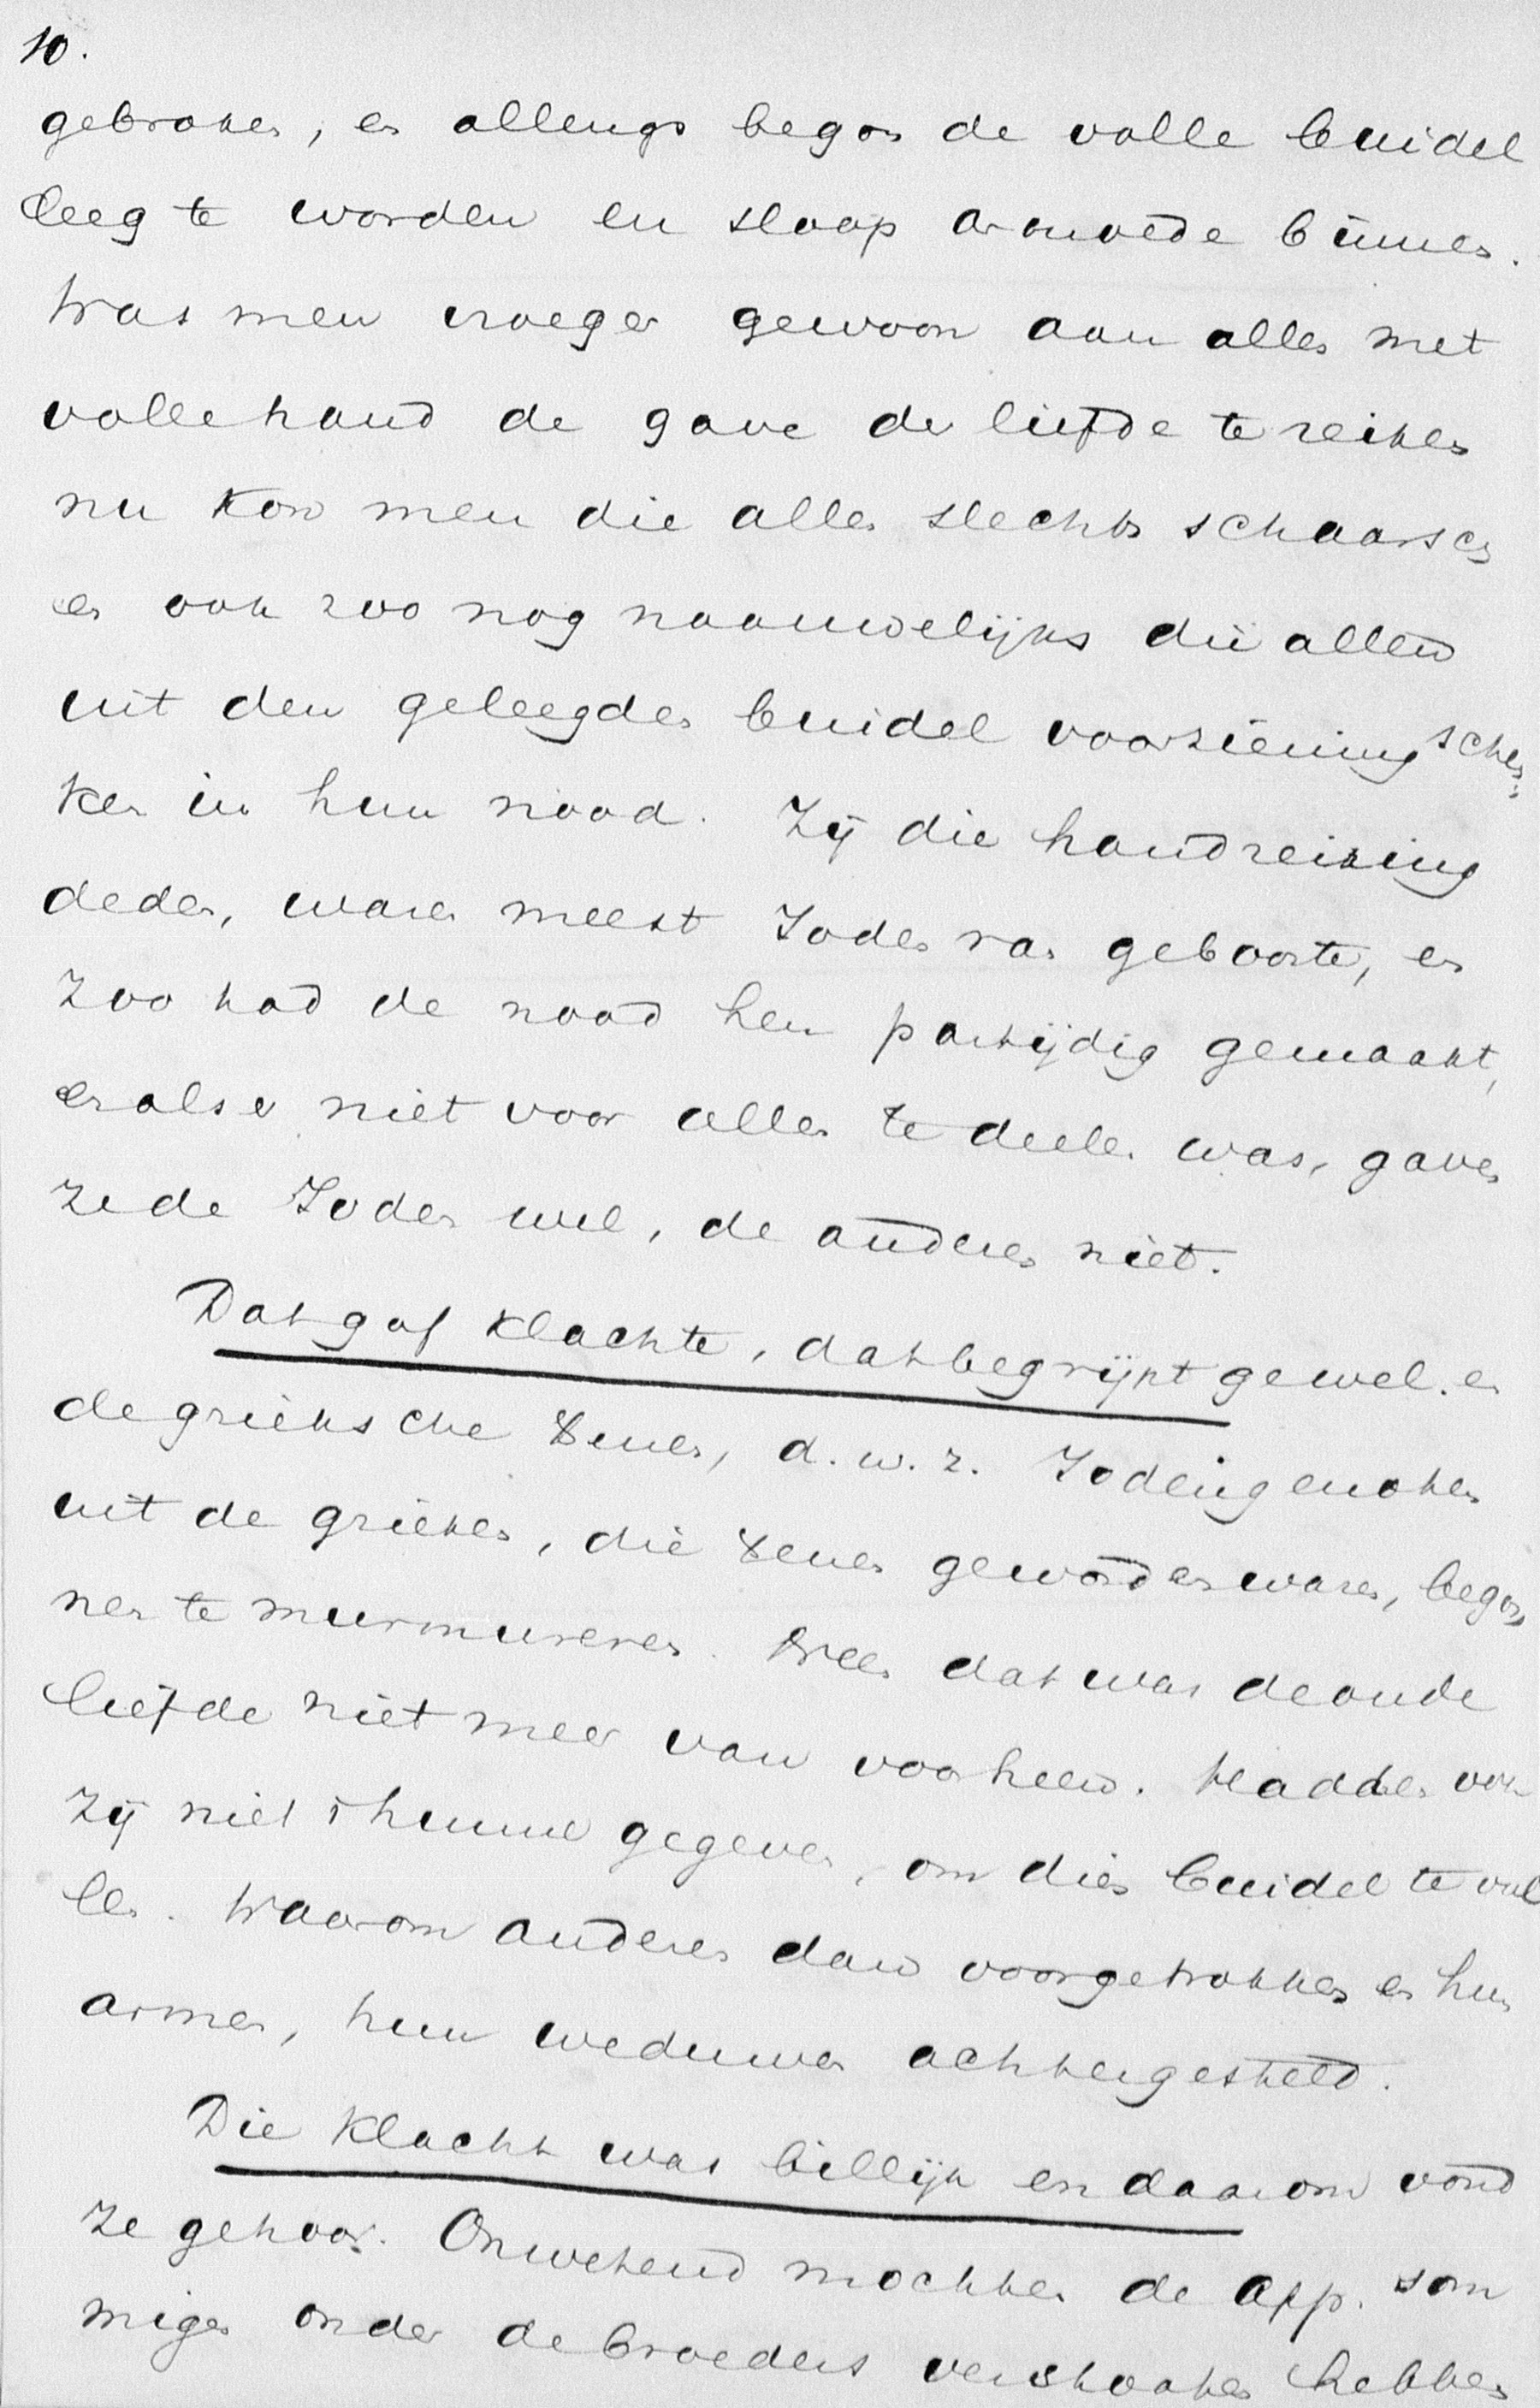 10.
gebroken, en allengs begon de volle buidel
leeg te worden en sloop armoede binnen.
Was men vroeger gewoon aan allen met
volle hand de gave der liefde te reiken
nu kon men die allen slechts schaarsch
en ook zoo nog naauwelijks die allen
uit den geleegden buidel voorziening schen
ken in hun nood. Zij die handreiking
deden, waren meest Joden van geboorte, en
zoo had de nood hen partijdig gemaakt,
en als er niet voor allen te deelen was, gaven
ze de Joden wel, de anderen niet.
Dat gaf klachte, dat begrijpt ge wel. en
de grieksche Xenen, d.w.z. Jodengenoten
uit de grieken, die Xenen geworden waren, begon
nen te murmureren. Neen dat was de oude
liefde niet meer van voorheen. Hadden ook
zij niet 't hunne gegeven, om dien buidel te vul
len. Waarom anderen dan voorgetrokken en hun
armen, hun weduwen achtergesteld.
Die klacht was billijk en daarom vond
ze gehoor. Onwetend mochten de App. som
migen onder de broeders verstooten hebben